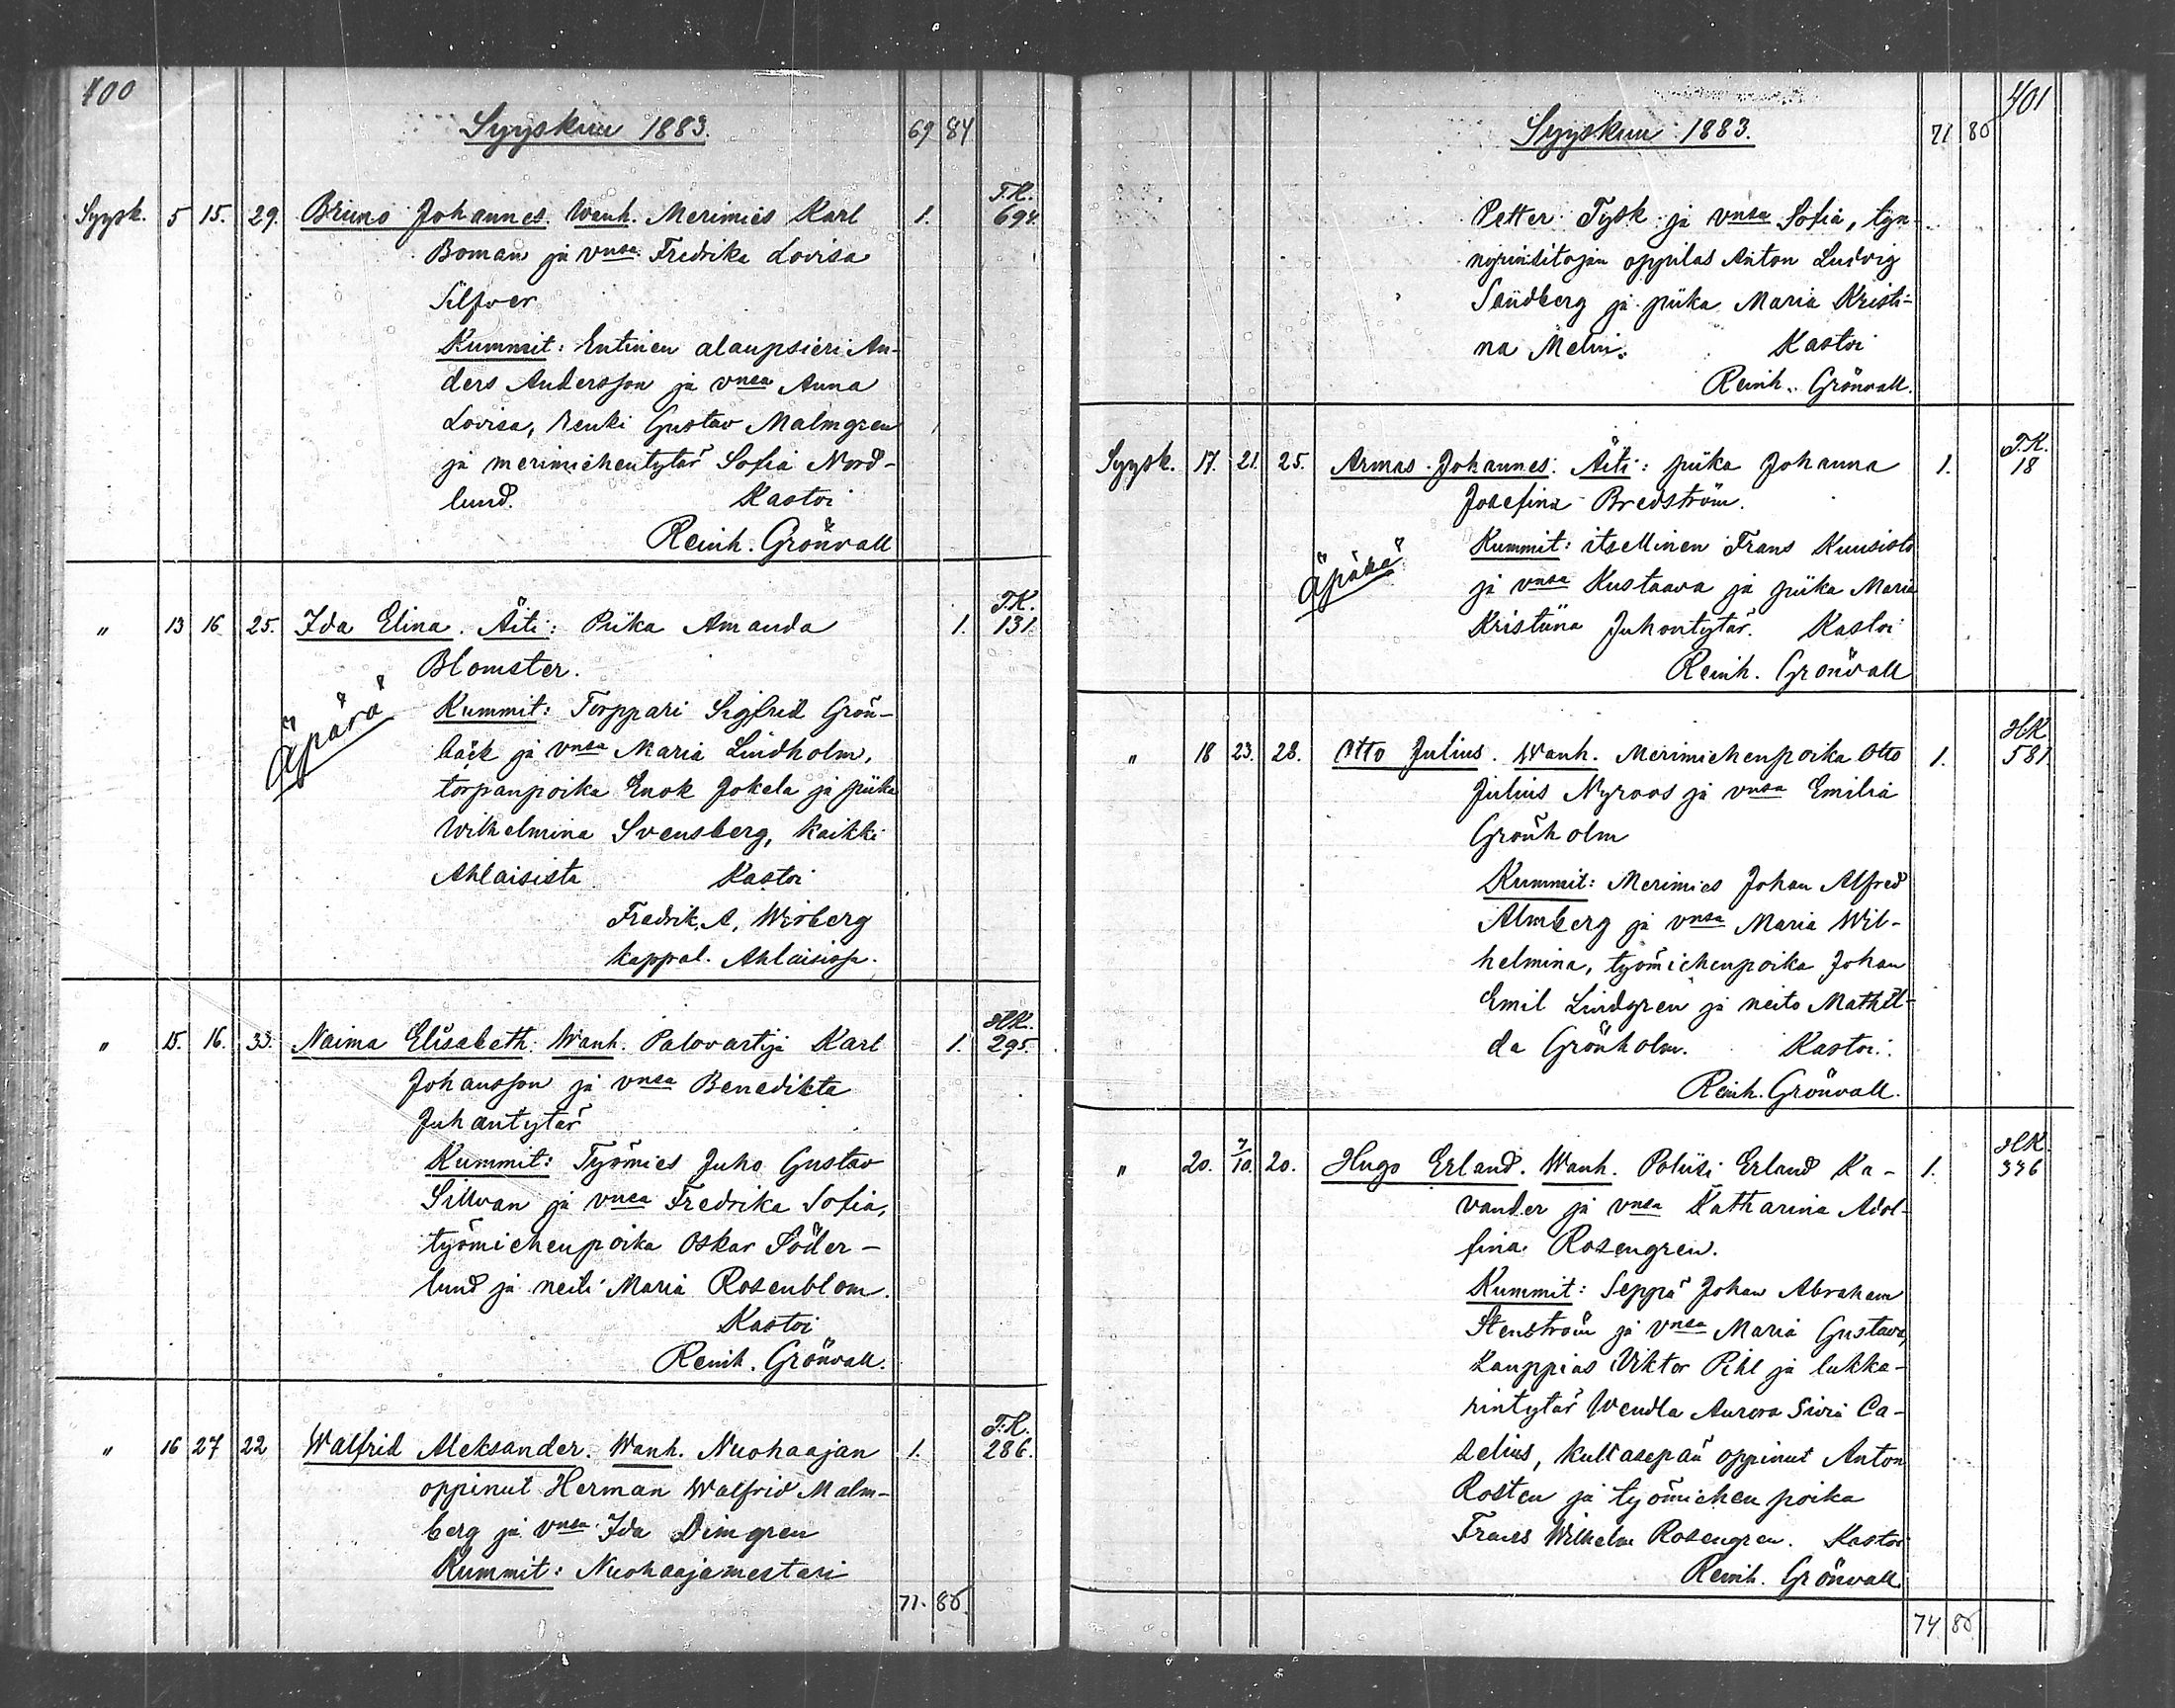 400
Syyskuu 1883. 69 84
Syysk. 5 15. 29. Bruno Johannes. Wanh. Merimies Karl 1. T.K. 694.
Boman ja vnsa Fredrika Lovisa
Silfver
Kummit: Entinen alaupsieri An-
ders Andersson ja vnsa Anna
Lovisa, Renki Gustav Malmgren
ja merimiehentytär Sofia Nord-
lund. Kastoi
Reinh. Grönvall
" 13 16 25. Ida Elina. Äiti: Piika Amanda 1. T.K. 131.
Blomster.
Äpärä
Kummit: Torppari Sigfrid Grön-
bäck ja vnsa Maria Lindholm,
torpanpoika Enok Jokela ja piika
Wilhelmina Svensberg, kaikki
Ahlaisista Kastoi
Fredrik. A. Wirberg
kappal. Ahlaisissa.
" 15. 16. 33. Naima Elisabeth. Wanh. Palovartija Karl 1. HK. 295.
Johansson ja vnsa Benedikta
Juhantytär
Kummit: Työmies Juho Gustav
Sillvan ja vnsa Fredrika Sofia,
työmiehenpoika Oskar Söder-
lund ja neiti Maria Rosenblom.
Kastoi
Reinh. Grönvall.
" 16 27 22 Walfrid Aleksander. Wanh. Nuohaajan 1. T.K. 286.
oppinut Herman Walfrid Malm-
berg ja vnsa Ida Dimgren
Kummit: Nuohaajamestari
71. 85.
401
Syyskuu 1883. 71 85
Petter Tysk ja vnsa Sofia, tyn-
nyrinsitojan oppilas Anton Ludvig
Sandberg ja piika Maria Kristi-
na Melin. Kastoi
Reinh. Grönvall.
Syysk. 17. 21. 25. Armas Johannes. Äiti: piika Johanna 1. T.K. 18
Josefina Bredström.
Äpärä
Kummit: itsellinen Frans Kuusisto
ja vnsa Kustaava ja piika Maria
Kristiina Juhontytär. Kastoi
Reinh. Grönvall
" 18 23. 28. Otto Julius. Wanh. Merimiehenpoika Otto 1. HK 581.
Julius Nyroos ja vnsa Emilia
Grönholm
Kummit: Merimies Johan Alfred
Almberg ja vnsa Maria Wil-
helmina, työmiehenpoika Johan
Emil Lindgren ja neito Mathil-
da Grönholm. Kastoi.
Reinh. Grönvall.
" 20. 7/10. 20. Hugo Erland. Wanh. Poliisi Erland Ka- 1. HK. 336
vander ja vnsa Katharina Adol-
fina Rosengren.
Kummit: Seppä Johan Abraham
Stenström ja vnsa Maria Gustava,
kauppias Viktor Pihl ja lukka-
rintytär Wendla Aurora Siviä Ca-
selius, kultasepän oppinut Anton
Rosten ja työmiehen poika
Frans Wilhelm Rosengren. Kastoi
Reinh. Grönvall.
74 85